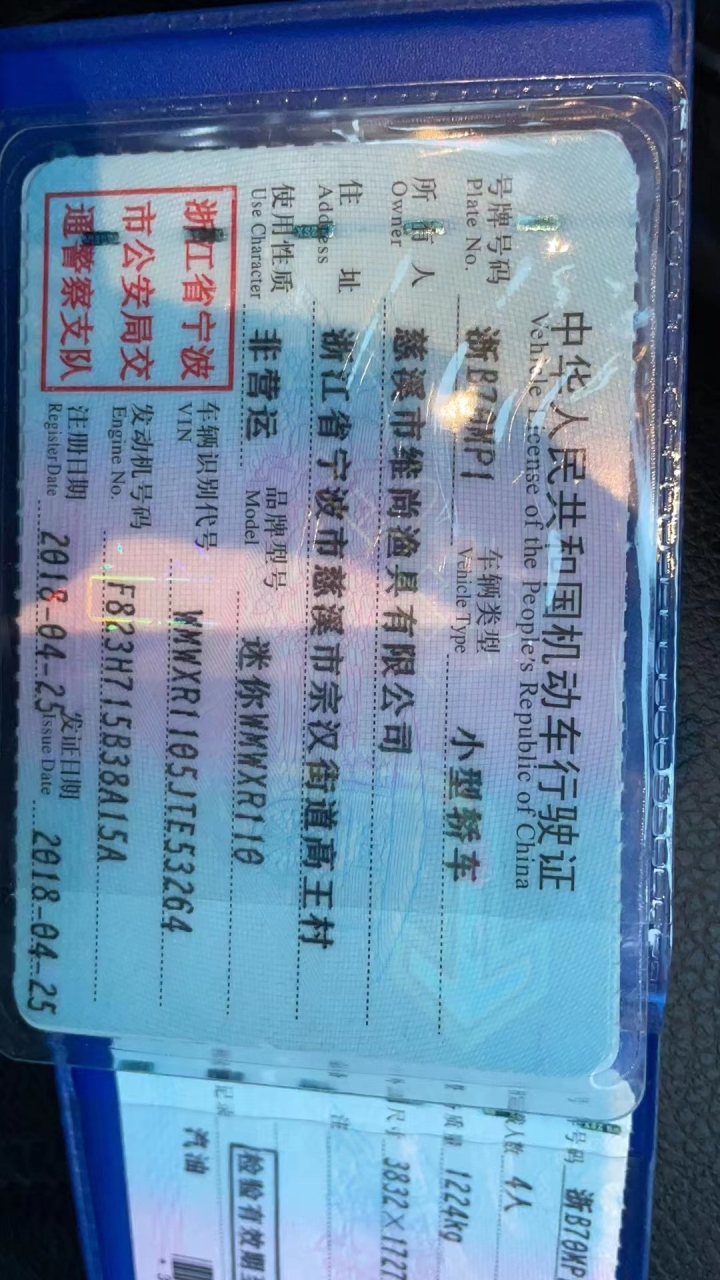 中华人民共和国机动车行驶证
Vehicle License of the People's Republic of China
号牌号码 浙B70MP1 车辆类型 小型轿车
Plate No. Vehicle Type
所有人 慈溪市维尚渔具有限公司
Owner
住 址 浙江省宁波市慈溪市宗汉街道高王村
Address
使用性质 非营运 品牌型号 迷你WMWXR110
Use Character Model
浙江省宁波
市公安局交
通警察支队
车辆识别代号 WMWXR1105JTE53264
VIN
发动机号码 F823H715B38A15A
Engine No.
注册日期 2018-04-25 发证日期 2018-04-25
Register Date Issue Date
牌号码 浙B70MP
载人数 4人
质量 1224kg
尺寸 3832×1727
注
检验有效期至
记录 汽油